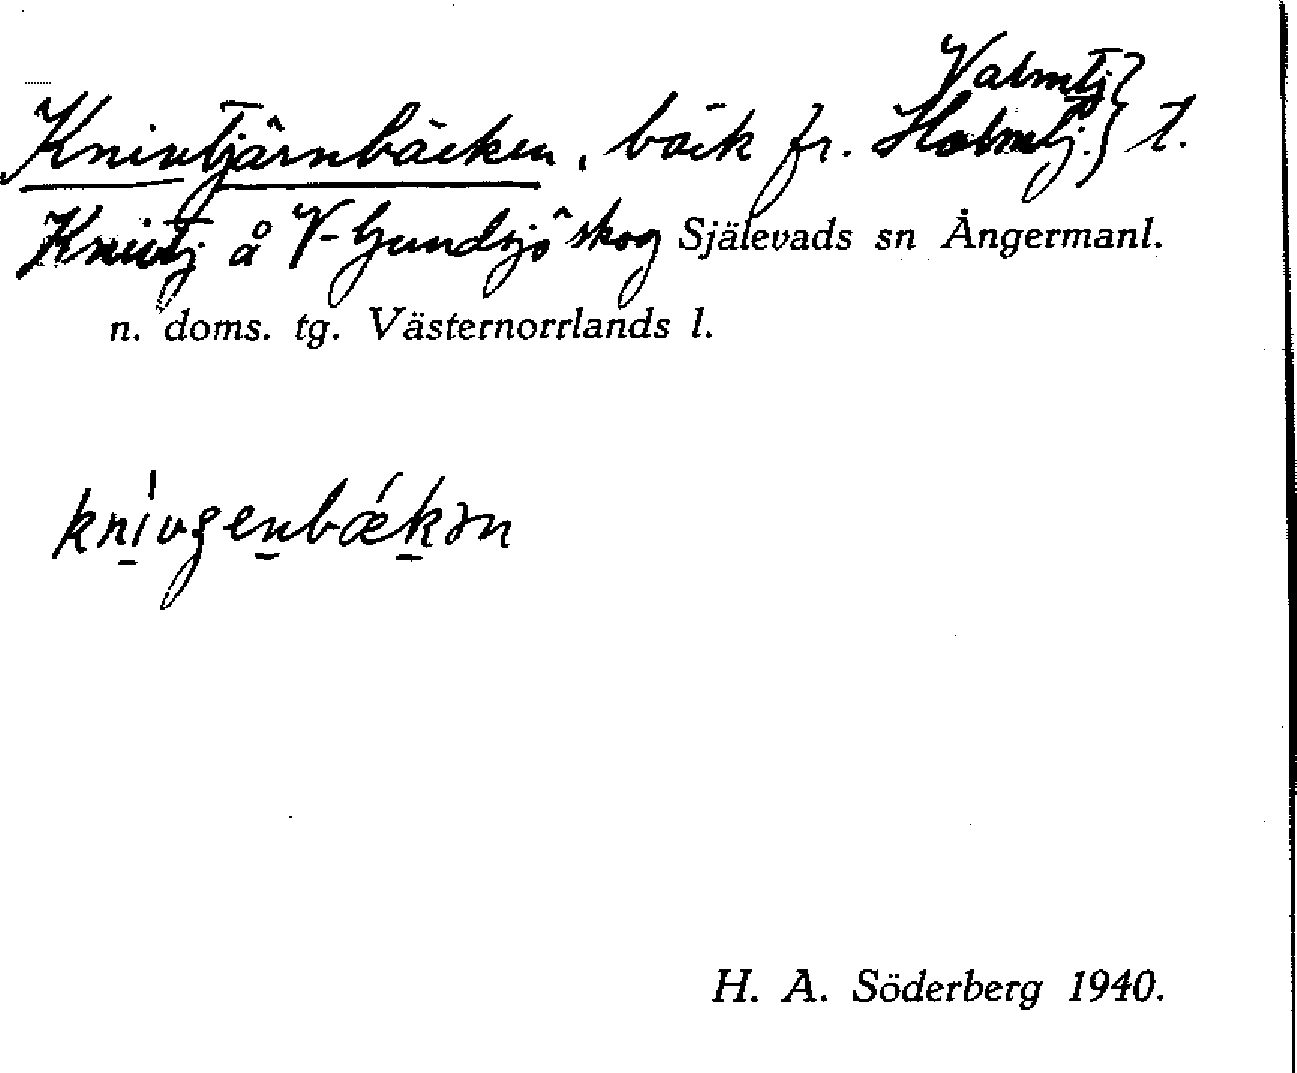 Valmtj }
Knivtjärnbäcken, bäck fr. Holmtj. } t.
Knivtj å V-Gundsjö skog Själevads sn Ångermanl.
n. doms. tg. Västernorrlands l.
H. A. Söderberg 1940.